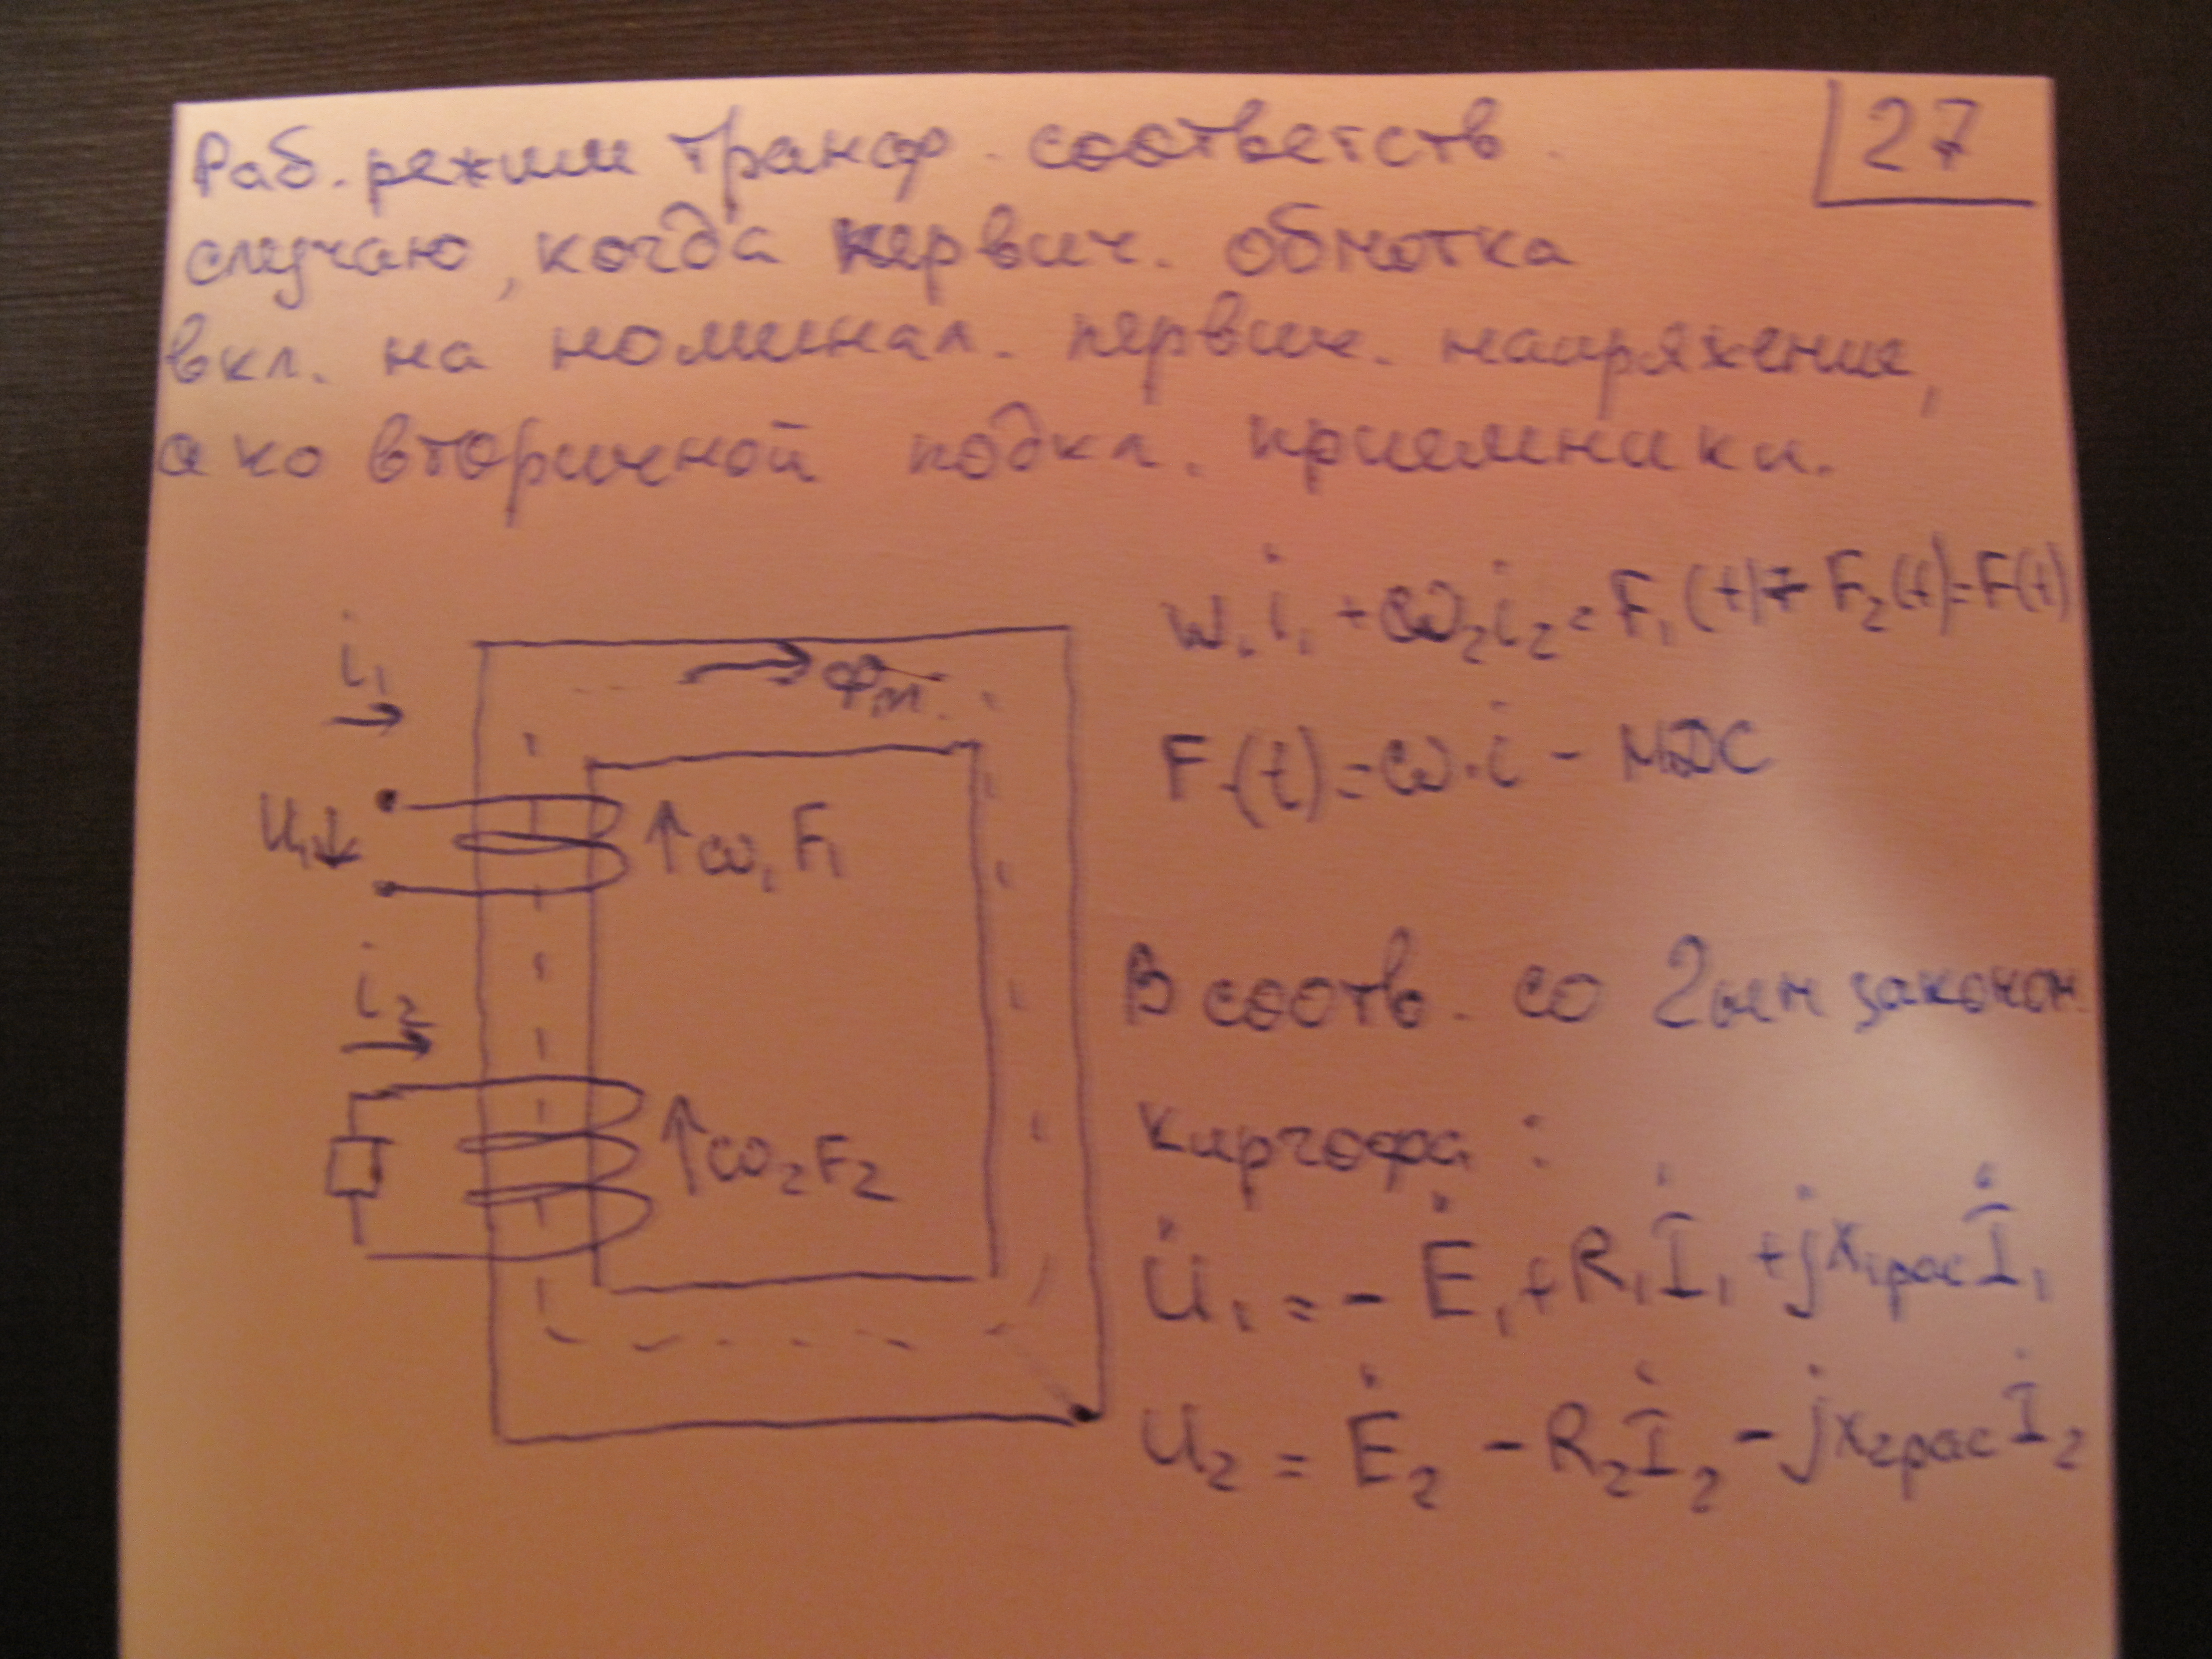 Раб. режим трансф. соответств.
27
случаю, когда первич. обмотка
вкл. на номинал. первич. напряжение,
а ко вторичной подкл. приемники.
w₁i₁ + ω₂i₂ = F₁(t) + F₂(t) = F(t)
i₁
Фт.
F(t) = ω·i - МДС
U₁↓
↑ω₁F₁
i₂
В соотв. со 2ым законом
Киргофа:
↑ω₂F₂
U̇₁ = - Ė₁ + R₁İ₁ + jx₁расİ₁
U̇₂ = Ė₂ - R₂İ₂ - jx₂расİ₂